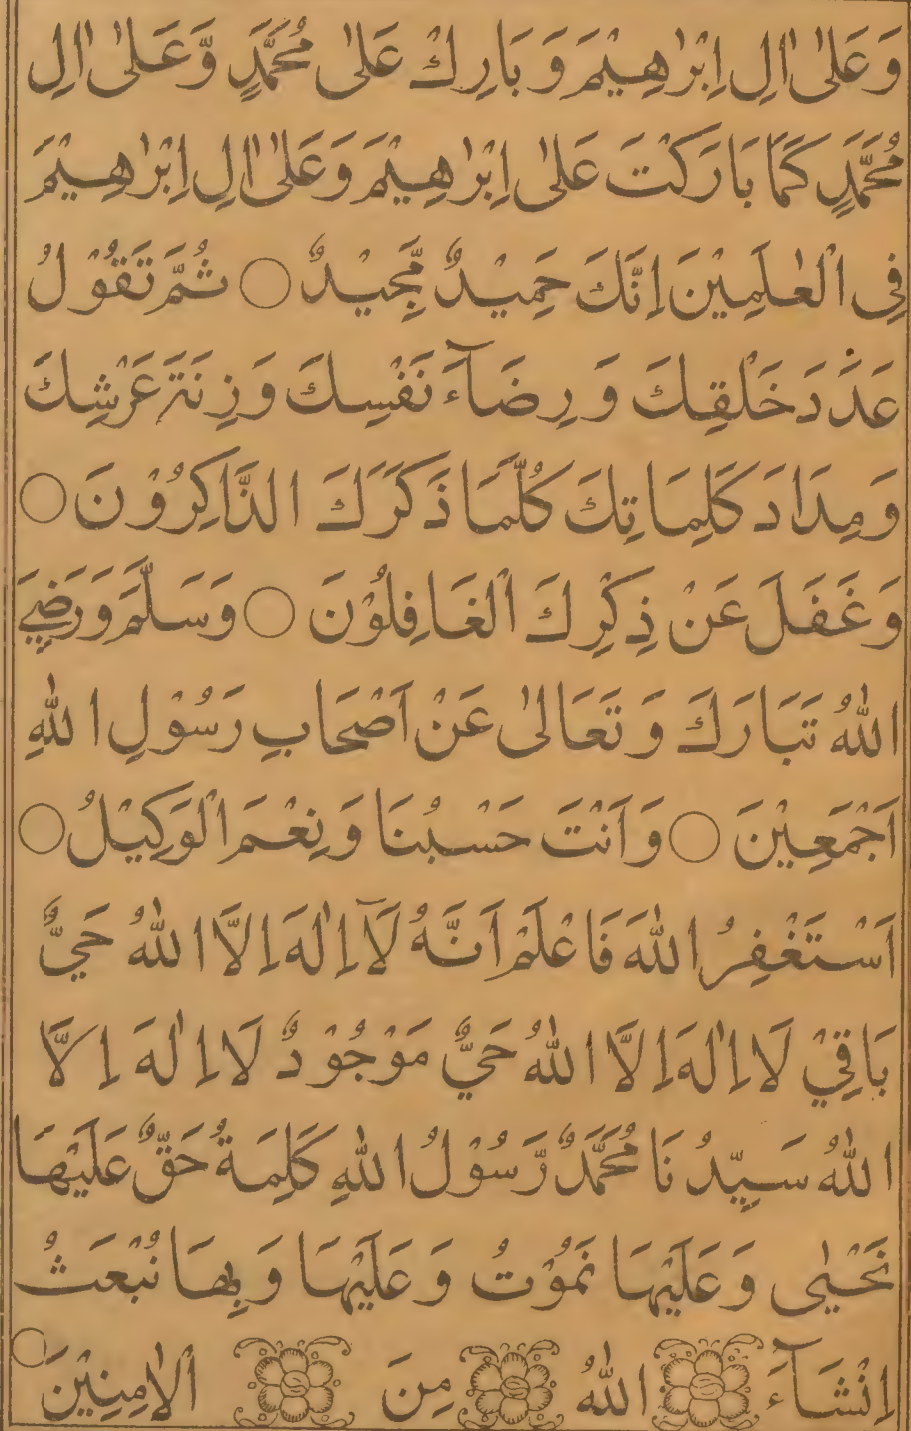 وَعَلٰى اٰلِ اِبْرٰهِيْمَ وَ بَارِكْ عَلٰى مُحَمَّدٍ وَّعَلٰى اٰلِ
مُحَمَّدٍ كَمَا بَارَكْتَ عَلٰى اِبْرٰهِيْمَ وَعَلٰى اٰلِ اِبْرٰهِيْمَ
فِى الْعٰلَمِيْنَ اِنَّكَ حَمِيْدٌ مَّجِيْدٌ ○ ثُمَّ تَقُوْلُ
عَدَدَ خَلْقِكَ وَ رِضَآءَ نَفْسِكَ وَ زِنَةَ عَرْشِكَ
وَ مِدَادَ كَلِمَاتِكَ كُلَّمَا ذَكَرَكَ الذَّاكِرُوْنَ ○
وَ غَفَلَ عَنْ ذِكْرِكَ الْغَافِلُوْنَ ○ وَسَلَّمَ وَرَضِيَ
اللّٰهُ تَبَارَكَ وَ تَعَالٰى عَنْ اَصْحَابِ رَسُوْلِ اللّٰهِ
اَجْمَعِيْنَ ○ وَ اَنْتَ حَسْبُنَا وَ نِعْمَ الْوَكِيْلُ ○
اَسْتَغْفِرُ اللّٰهَ فَاعْلَمْ اَنَّهُ لَآ اِلٰهَ اِلَّا اللّٰهُ حَيٌّ
بَاقِيْ لَا اِلٰهَ اِلَّا اللّٰهُ حَيٌّ مَوْجُوْدٌ لَا اِلٰهَ اِلَّا
اللّٰهُ سَيِّدُنَا مُحَمَّدٌ رَّسُوْلُ اللّٰهِ كَلِمَةُ حَقٍّ عَلَيْهَا
نَحْيٰى وَ عَلَيْهَا نَمُوْتُ وَ عَلَيْهَا وَ بِهَا نُبْعَثُ
اِنْشَآءَ اللّٰهُ مِنَ الْاٰمِنِيْنَ ○